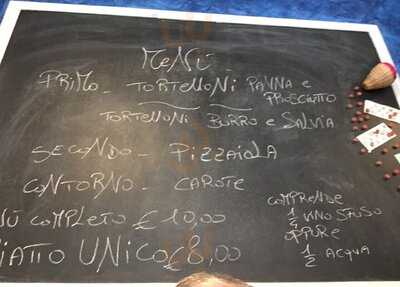 MENÙ
PRIMO - TORTELLONI PANNA e
PROSCIUTTO
TORTELLONI BURRO e SALVIA
SECONDO - PIZZAIOLA
CONTORNO - CAROTE
NÙ COMPLETO € 10,00
IATTO UNICO € 8,00
COMPRENDE
1/2 VINO SFUSO
OPPURE
1/2 ACQUA